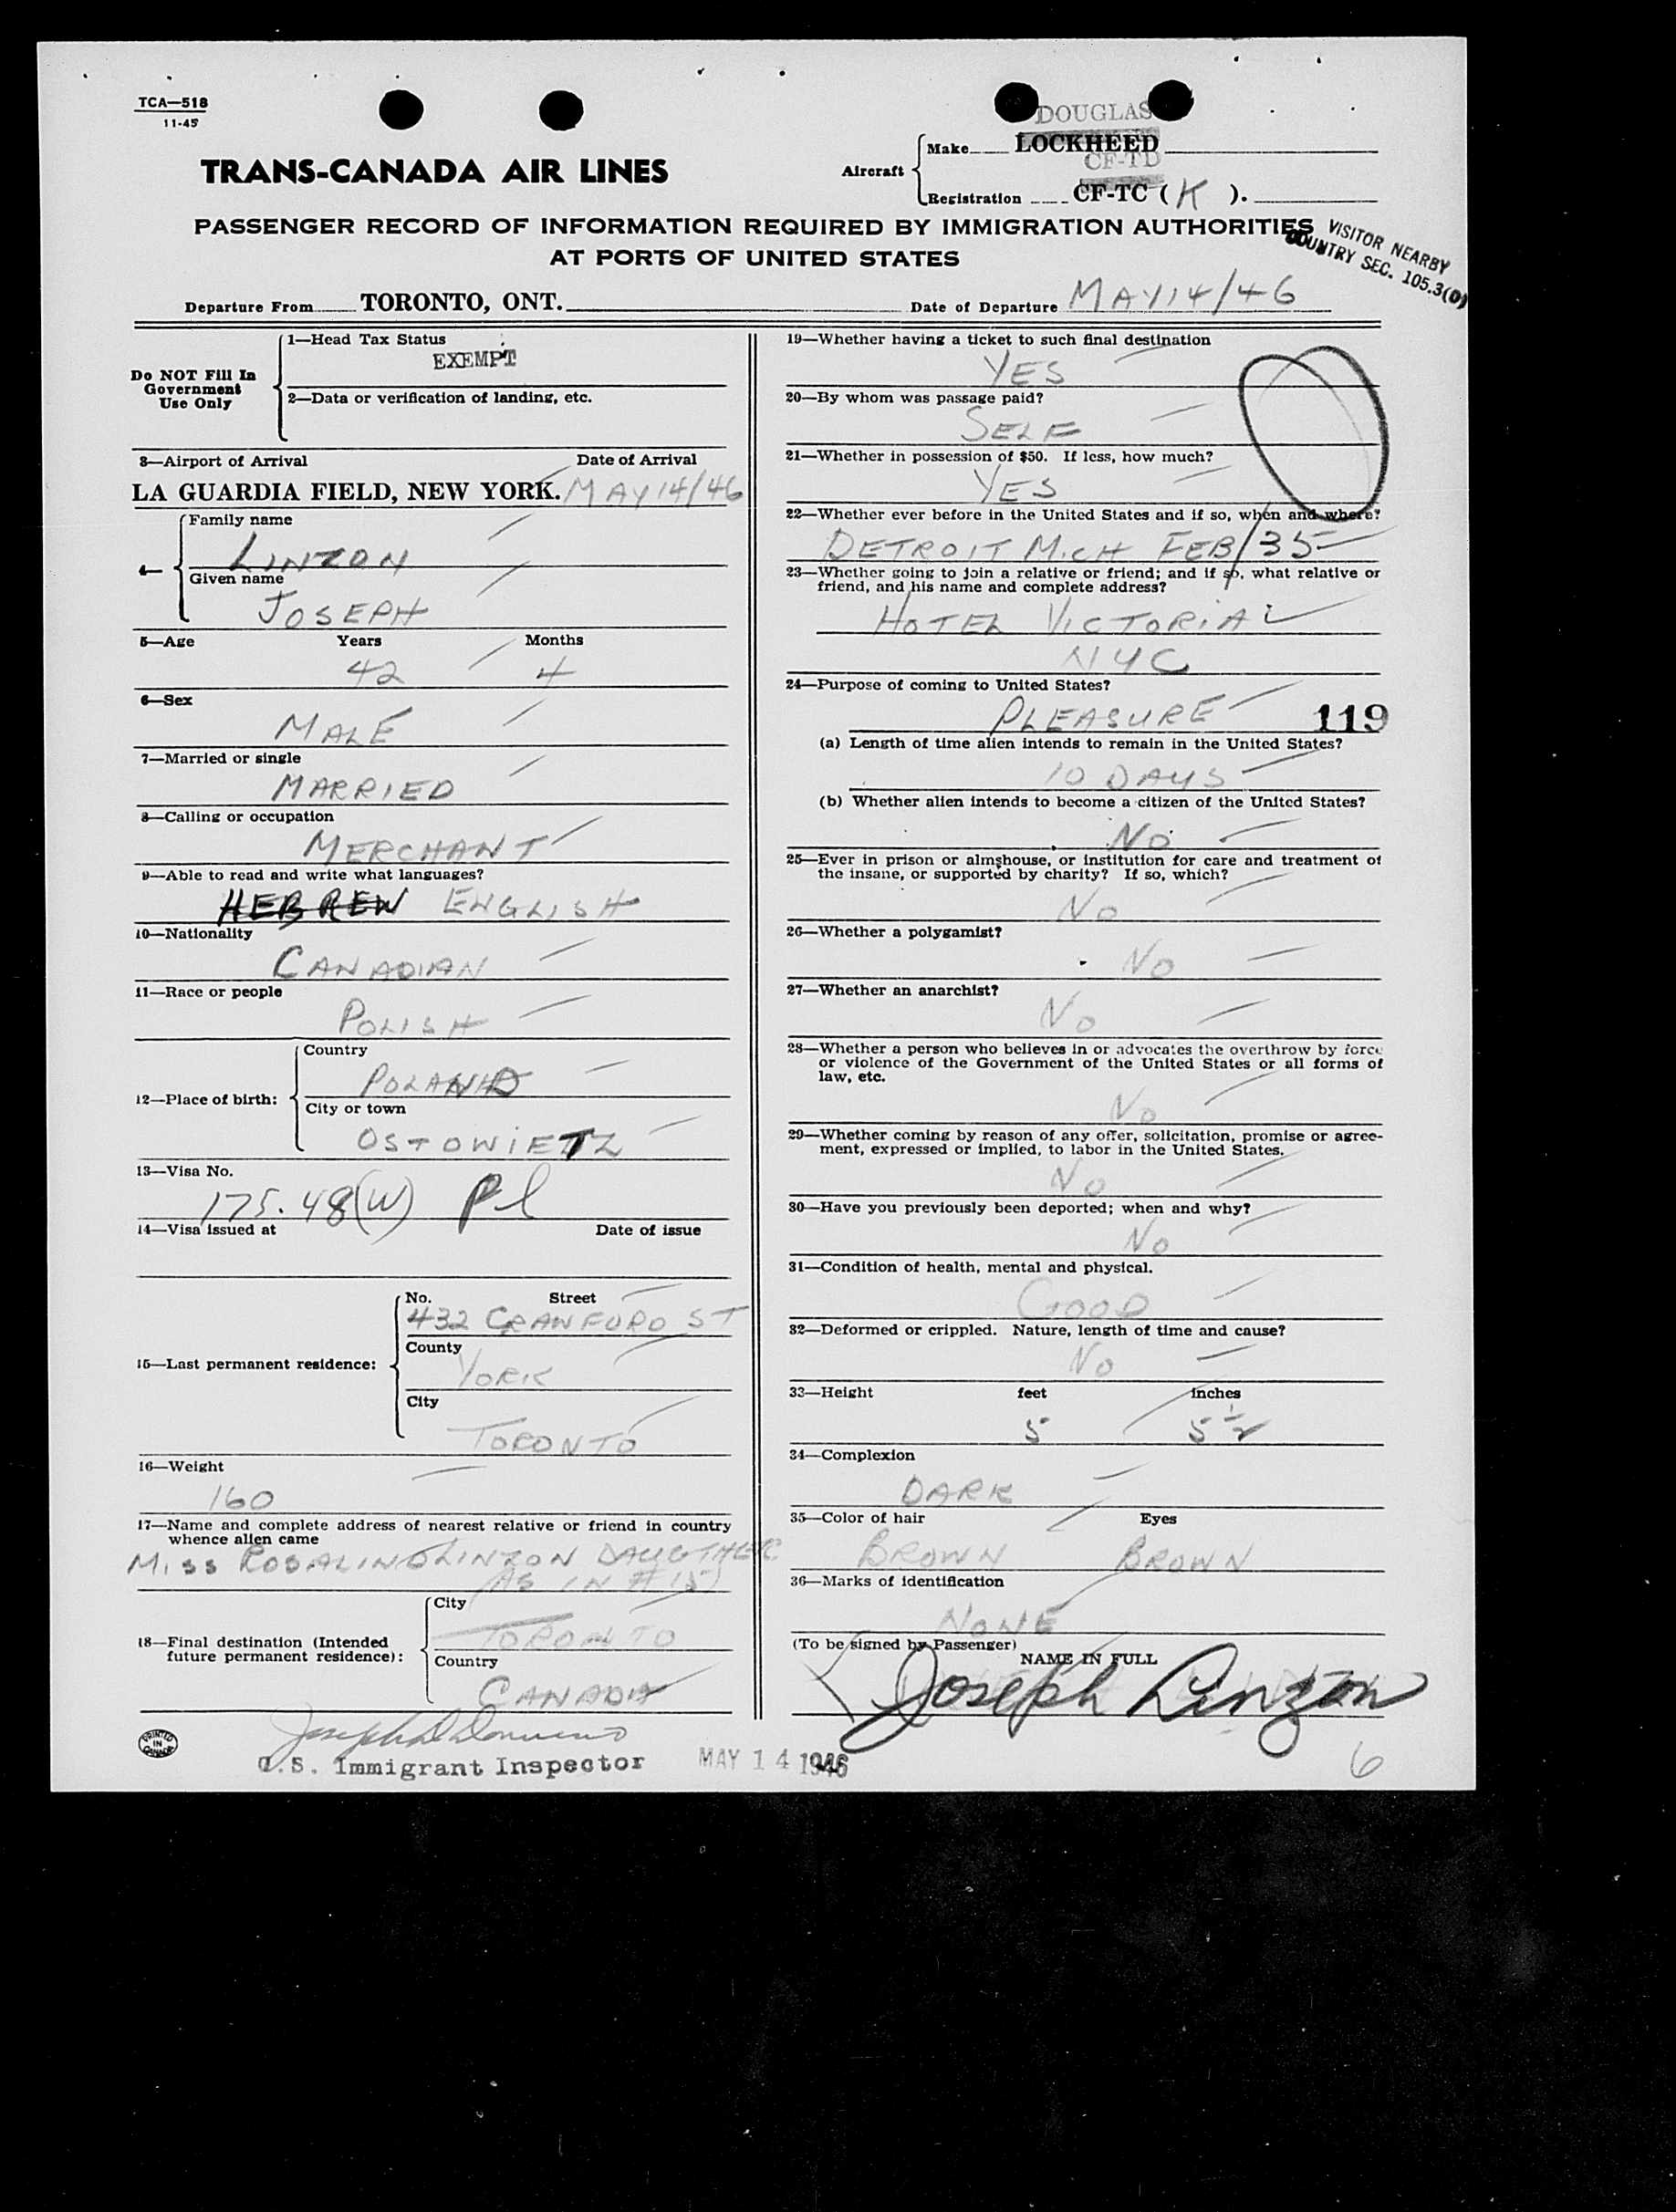 TCA—518
11-45
DOUGLAS
Aircraft
Make LOCKHEED
CF-TD
Registration CF-TC (K).
TRANS-CANADA AIR LINES
PASSENGER RECORD OF INFORMATION REQUIRED BY IMMIGRATION AUTHORITIES
AT PORTS OF UNITED STATES
VISITOR NEARBY
COUNTRY SEC. 105.3(0)
Departure From TORONTO, ONT. Date of Departure MAY 14/46
Do NOT Fill In
Government
Use Only
1—Head Tax Status
EXEMPT
2—Data or verification of landing, etc.
3—Airport of Arrival Date of Arrival
LA GUARDIA FIELD, NEW YORK. MAY 14/46
4—
Family name
LINZON
Given name
JOSEPH
5—Age Years Months
42 4
6—Sex
MALE
7—Married or single
MARRIED
8—Calling or occupation
MERCHANT
9—Able to read and write what languages?
HEBREW ENGLISH
10—Nationality
CANADIAN
11—Race or people
POLISH
12—Place of birth:
Country
POLAND
City or town
OSTOWIETZ
13—Visa No.
175.48(W) Pl
14—Visa issued at Date of issue
15—Last permanent residence:
No. Street
432 CRAWFORD ST
County
YORK
City
TORONTO
16—Weight
160
17—Name and complete address of nearest relative or friend in country
whence alien came
MISS ROSALIND LINZON DAUGTHER
AS IN #15)
18—Final destination (Intended
future permanent residence):
City
TORONTO
Country
CANADA
19—Whether having a ticket to such final destination
YES
20—By whom was passage paid?
SELF
21—Whether in possession of $50. If less, how much?
YES
22—Whether ever before in the United States and if so, when and where?
DETROIT MICH FEB/35
23—Whether going to join a relative or friend; and if so, what relative or
friend, and his name and complete address?
HOTEL VICTORIA
NYC
24—Purpose of coming to United States?
PLEASURE
119
(a) Length of time alien intends to remain in the United States?
10 DAYS
(b) Whether alien intends to become a citizen of the United States?
NO
25—Ever in prison or almshouse, or institution for care and treatment of
the insane, or supported by charity? If so, which?
NO
26—Whether a polygamist?
NO
27—Whether an anarchist?
NO
28—Whether a person who believes in or advocates the overthrow by force
or violence of the Government of the United States or all forms of
law, etc.
NO
29—Whether coming by reason of any offer, solicitation, promise or agree-
ment, expressed or implied, to labor in the United States.
NO
30—Have you previously been deported; when and why?
NO
31—Condition of health, mental and physical.
GOOD
32—Deformed or crippled. Nature, length of time and cause?
NO
33—Height feet inches
5 5½
34—Complexion
DARK
35—Color of hair Eyes
BROWN BROWN
36—Marks of identification
NONE
(To be signed by Passenger)
NAME IN FULL
Joseph Linzon
PRINTED
IN
CANADA
Joseph
U.S. Immigrant Inspector MAY 14 1946
6